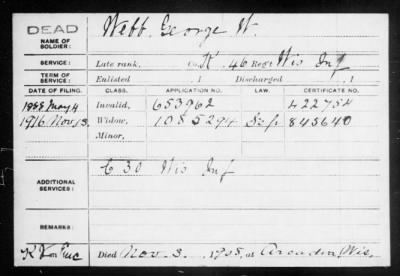 DEAD
NAME OF SOLDIER: Webb, George W.
SERVICE: Late rank, Co. K, 46 Reg't Wis Inf
TERM OF SERVICE: Enlisted , 1 Discharged , 1
DATE OF FILING. CLASS. APPLICATION NO. LAW. CERTIFICATE NO.
1888 May 4 Invalid, 653962 422754
1916 Nov. 13. Widow, 1085294 843640
Minor,
ADDITIONAL SERVICES: C 30 Wis Inf
REMARKS:
Died Nov. 3, 1908, at Arcadia, Wis.